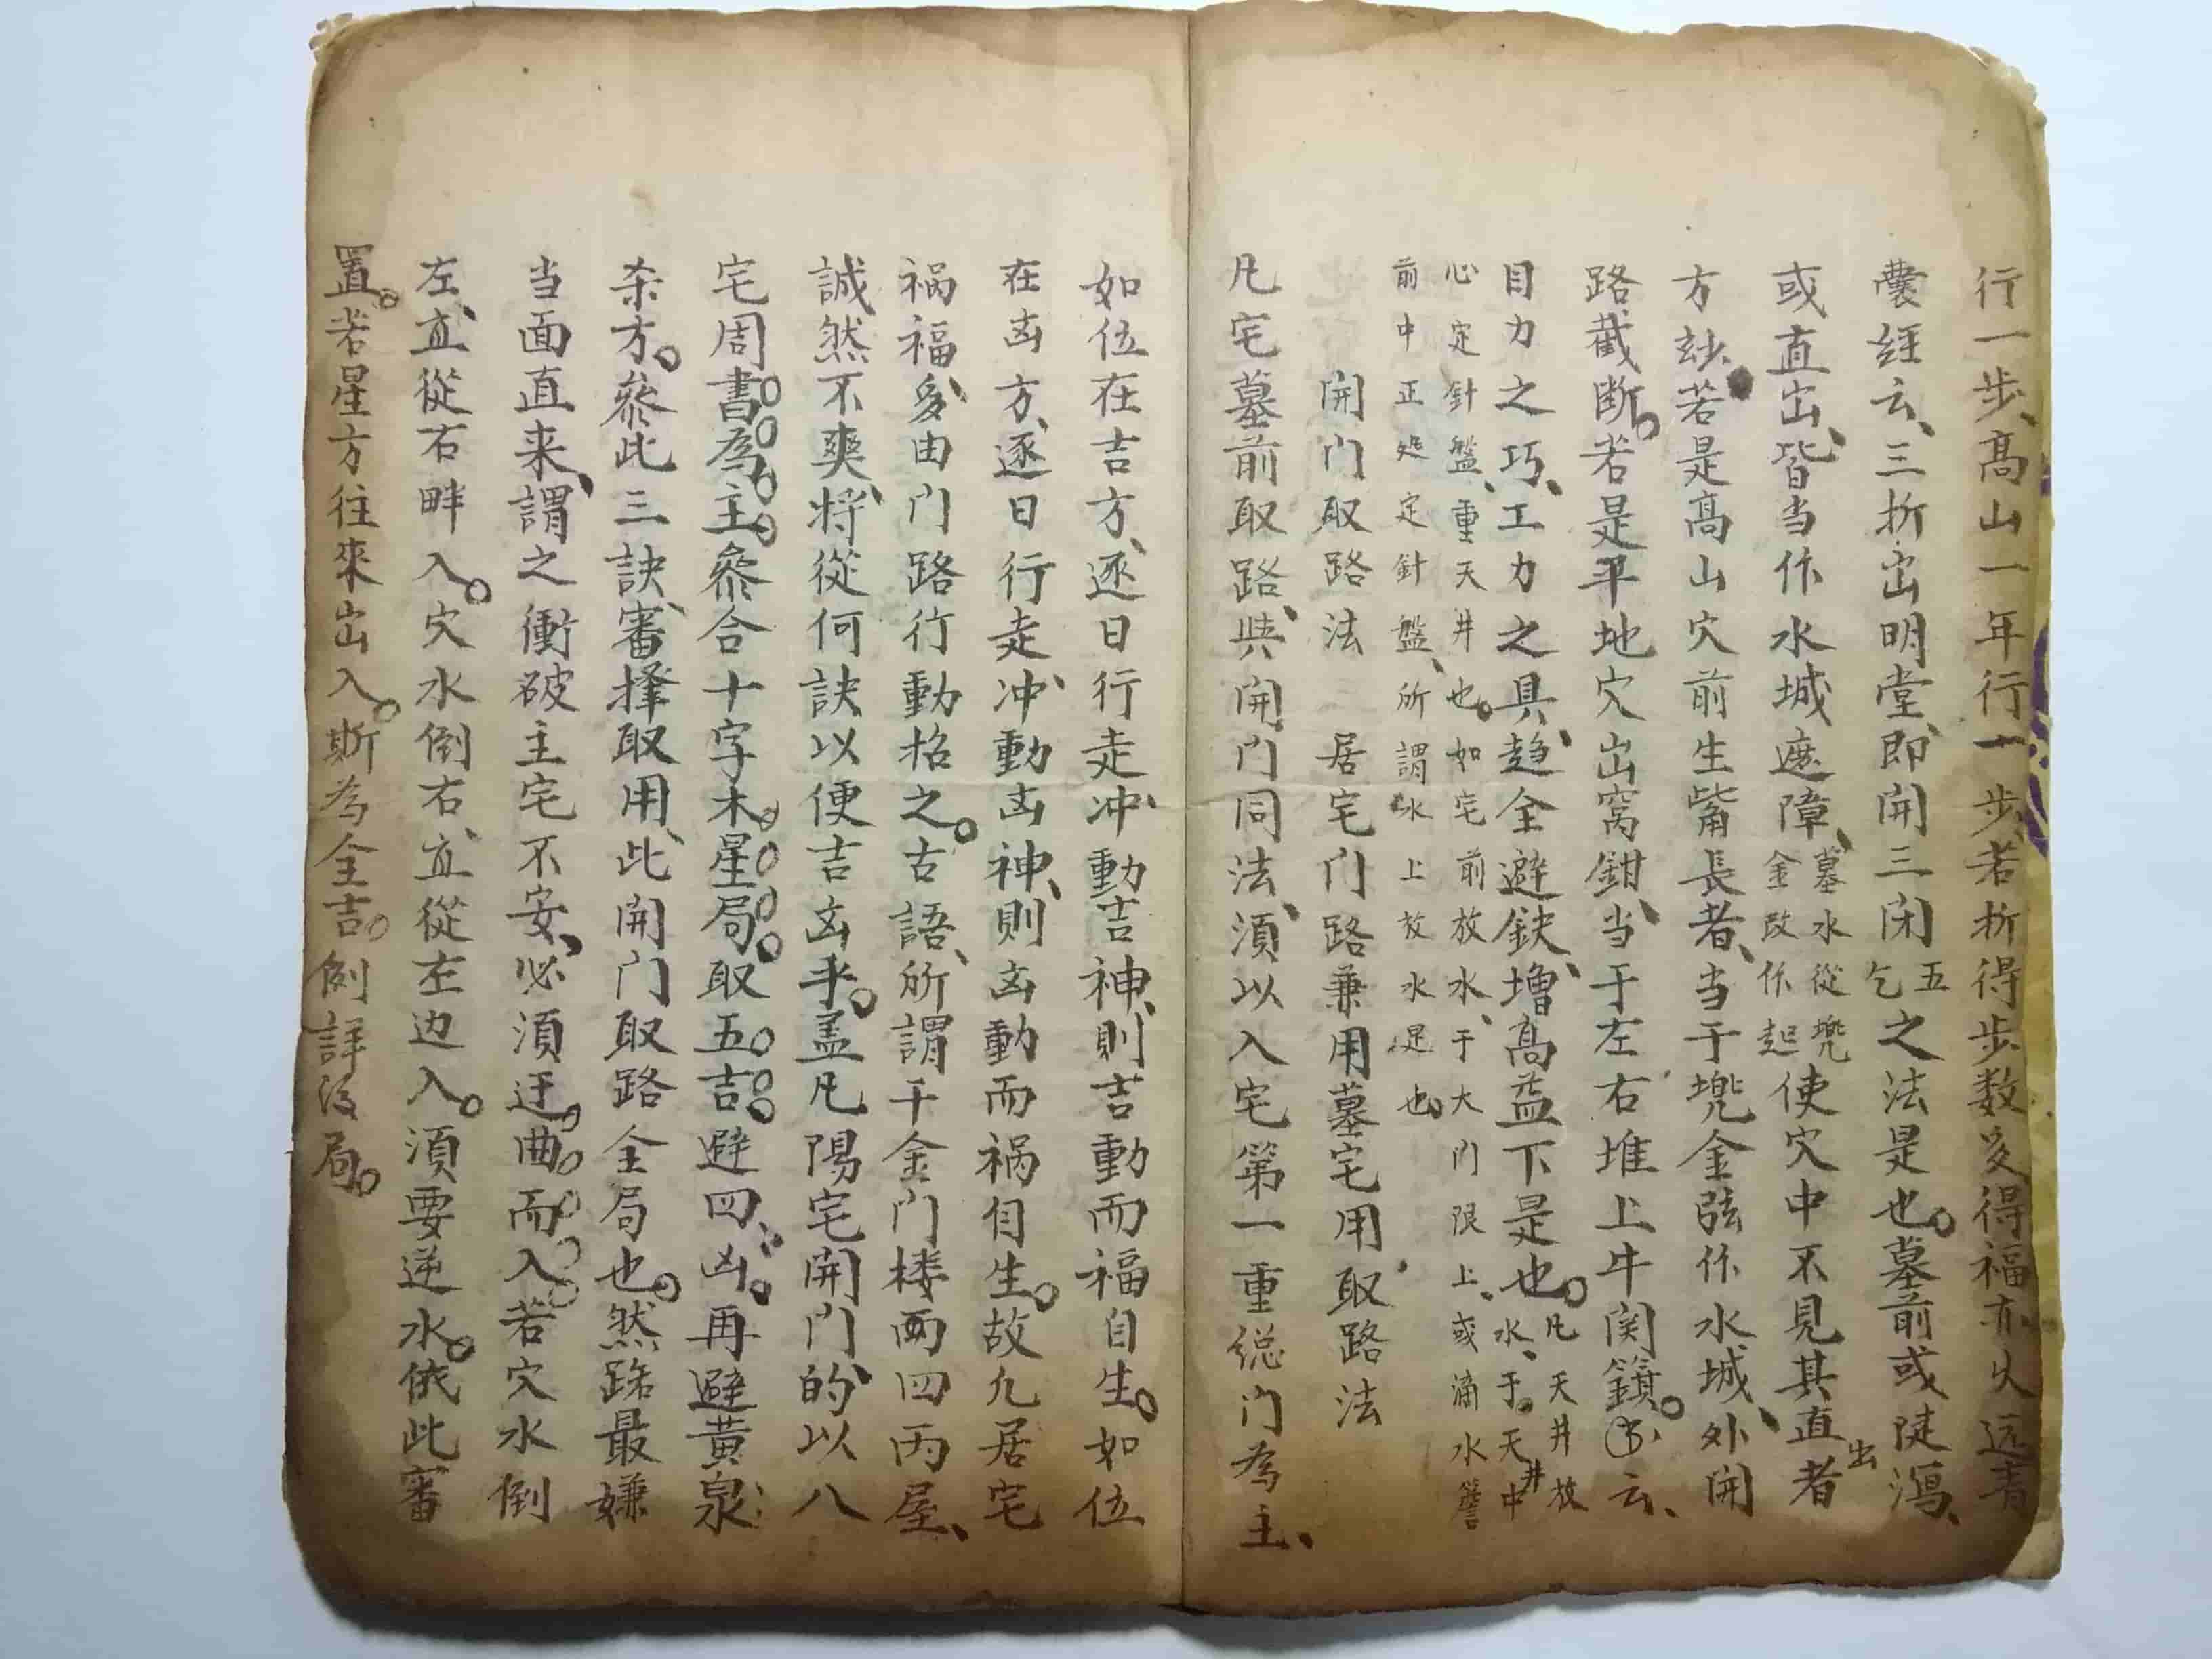 行一步、高山一年行一步、若折得步数多得福亦久远青
囊経云、三折出明堂、即開三閉五乞之法是也。墓前或陡瀉、
或直出、皆当作水城遮障、墓水從兠金改作起使穴中不見其直出者
方玅、若是高山穴前生嘴長者、当于兠金弦作水城、外開
路、截断。若是平地穴出窝鉗、当于左右堆上牛関鎖。云、
目力之巧、工力之具、趋全避缺、增高益下是也。凡天井放水、于天井中
心定針盤、重天井也。如宅前放水、于大门限上、或滴水簷
前中正处定針盤、所謂水上放水是也。
開门取路法 居宅门路兼用墓宅用取路法
凡宅墓前取路、與開门同法、須以入宅第一重総门為主、
如位在吉方、逐日行走、冲動吉神、則吉動而福自生。如位
在凶方、逐日行走、冲動凶神、則凶動而祸自生。故凢居宅
祸福多由门路行動招之。古語、所謂千金门楼両四丙屋、
誠然不爽、将從何訣以便吉凶乎。盖凡陽宅開门的以八
宅周書為主、叅合十字木星局、取五吉。避四凶。再避黄泉
杀方。叅此三訣、審擇取用、此開门取路全局也。然路最嫌
当面直来、謂之衝破主宅不安、必須迂曲而入若穴水倒
左、直從右畔入。穴水倒右、直從左边入。須要逆水。依此審
置。若星方往來出入。斯為全吉。例詳後局。